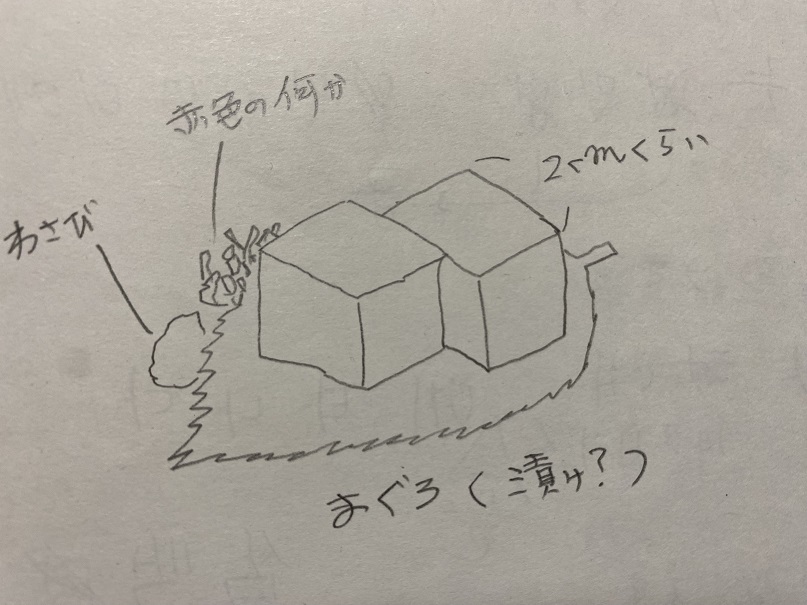 赤色の何か
2cmくらい
わさび
まぐろ(漬け?)